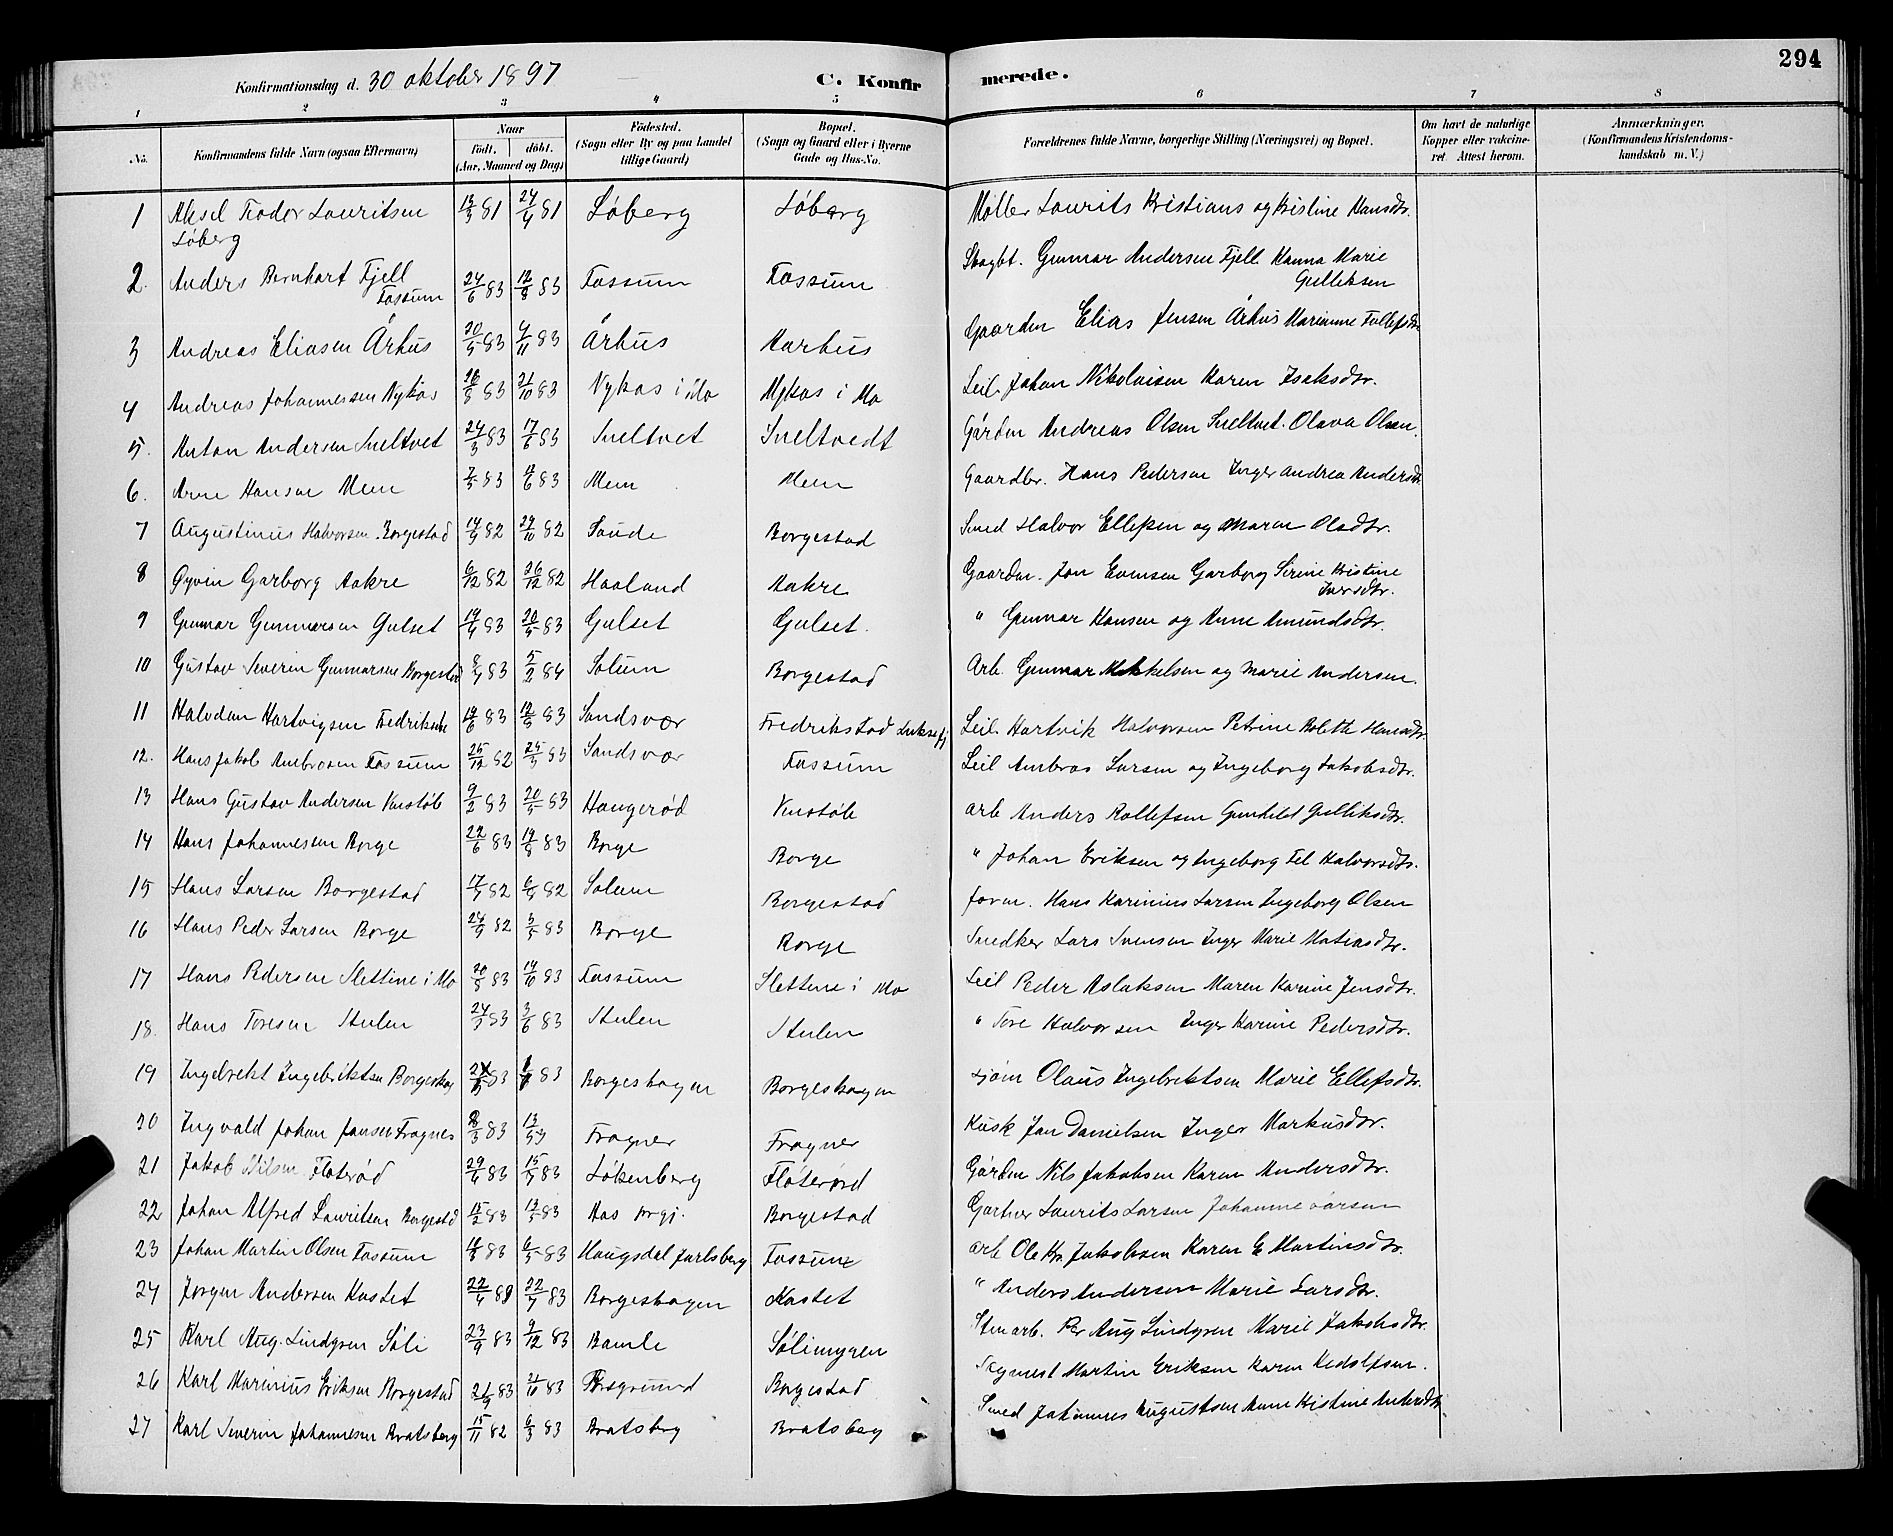 294
Konfirmationsdag d. 30 oktober 1897 C. Konfirmerede.
1 2 3 4 5 6 7 8
No. Konfirmandens fulde Navn (ogsaa Efternavn) Naar født. døbt. (Aar, Maaned og Dag) Fødested. (Sogn eller By og paa Landet tillige Gaard) Bopæl. (Sogn og Gaard eller i Byerne Gade og Hus-No. Forældrenes fulde Navne, borgerlige Stilling (Næringsvei) og Bopæl. Om havt de naturlige Kopper eller vakcineret Attest herom. Anmærkninger. (Konfirmandens Kristendomskundskab m. V.)
1 Aksel Teodor Lauritsen Løberg 81 24/4 81 Løberg Løberg Møller Laurits Kristians og Kristine Hansdtr.
2. Anders Bernhart Fjell Fossum 24/6 83 12/8 83 Fossum Fossum Skogbt. Gunnar Andersen Fjell Hanna Marie Gulliksen
3 Andreas Eliasen Århus 20/5 83 4/11 83 Århus Aarhus Gaarden Elias Jensen Århus Marianne Tollefsdtr
4 Andreas Johannessen Nykås 26/8 83 21/10 83 Nykas i Mo Nykas i Mo Leil. Johan Nikolaisen Karen Isaksdtr.
5. Anton Andersen Sneltvet 24/3 83 17/6 83 Sneltvet Sneltvedt Gården Andreas Olsen Sneltvet. Olava Olsen.
6. Arne Hansen Mem 83 4/6 83 Mem Mem Gaardbr. Hans Pedersen Inger Andrea Andersdtr
7 Augustinus Halvorsen Borgestad 82 29/10 82 Saude Borgestad Smed Halvor Ellefsen og Maren Olsdtr.
8 Øyvin Garborg Aakre 6/12 82 26/12 82 Haaland Aakre Gaardm. Jon Evensen Garborg Sirine Kristine Iversdtr.
9 Gunnar Gunnarsen Gulset 19/4 83 20/5 83 Gulset Gulset. " Gunnar Hansen og Anne Amundsdtr.
10 Gustav Severin Gunnarsen Borgestad 83 5/2 84 Solum Borgestad Arb. Gunnar Mikkelsen og Marie Andersen.
11 Halvdan Hartvigsen 83 83 Sandsvær Fredrikstad Leil. Hartvik Halvorsen Petrine Hansdtr.
12. Hans Jakob Ambrosen Fossum 25/12 82 83 Sandsvær Fossum Leil Ambros Larsen og Ingeborg Jakobsdtr.
13 Hans Gustav Andersen Venstøb 9/2 83 20/5 83 Haugerød Venstøb arb Anders Rollefsen Gunhild Gulliksdtr.
14 Hans Johannesen Borge 22/6 83 19/8 83 Borge Borge " Johan Eriksen og Ingeborg Halvorsdtr.
15 Hans Larsen Borgestad 82 82 Solum Borgestad form. Hans Karinius Larsen Ingeborg Olsen
16 Hans Peder Larsen Borge 24/9 82 83 Borge Borge Snedker Lars Svensen Inger Marie Matiasdtr.
17 Hans Pedersen Slettene i Mo 20/8 83 14/10 83 Fossum Slettene i Mo Leil Peder Aslaksen Maren Karine Jensdtr.
18. Hans Toresen Stulen 83 3/6 83 Stulen Stulen " Tore Halvorsen Inger Karine Pedersdtr.
19 Ingebrekt Ingebriktsen 83 83 Borgeskogen Borgeskogen sjøm Olaus Ingebrektsen Marie Ellefsdtr.
20 Ingvald Johan Jansen Fragner 83 Fragner Fragner Kusk Jan Danielsen Inger Markusdtr.
21 Jakob Nilsen Floterød 29/4 83 83 Løkenberg Fløterød Gården Nils Jakobsen Karen Andersdtr.
22 Johan Alfred Lauritsen Borgestad 15/2 83 83 Aas prgj. Borgestad Gartner Laurits Larsen Johanne Larsen
23 Johan Martin Olsen Fossum 83 6/5 83 Haugsdal Jarlsberg Fossum arb Ole Kr. Jakobsen Karen E Martinsdtr.
24 Jørgen Andersen Kastet 22/4 83 22/7 83 Borgeskogen Kastet " Anders Andersen Marie Larsdtr.
25 Karl Aug. Lindgren Søli 23/9 83 9/12 83 Bamle Sølimyren Stenarb. Per Aug Lindgren Marie Jakobsdtr.
26 Karl Marinius Eriksen Borgestad 83 21/10 83 Porsgrund Borgestad Martin Eriksen Karen
27 Karl Severin Johannesen Bratsberg 15/11 82 6/3 83 Bratsberg Bratsberg Smed Johannes Augustsen Anne Kristine Andersdtr